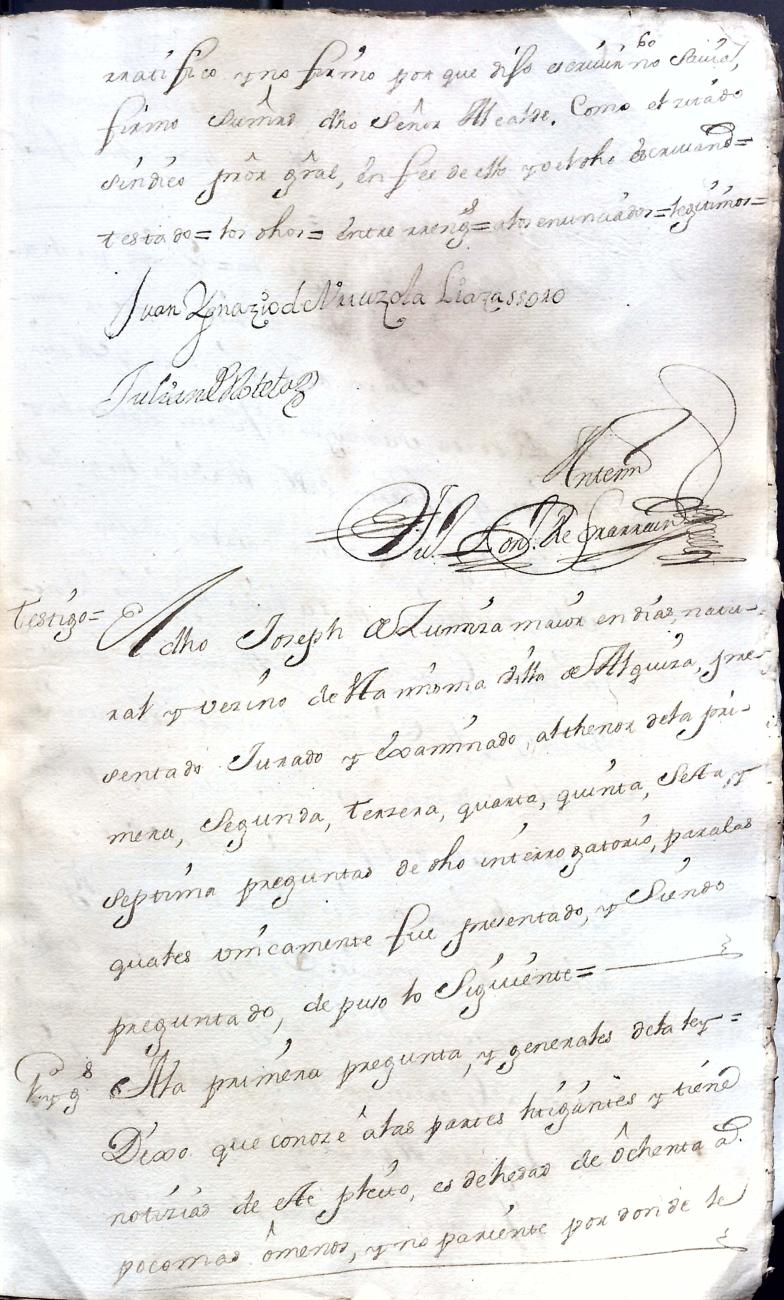 rratifico, y no firmo por que dijo escriuir no Sauia,
firmo Sumrd dho Señor Alcalde, Como el zitado
Sindico pror gral, en fee de ello yo el dho escriuano=
testado= los dhos= Entre rreng.s= a los enunciados= legitimos=
Juan Ygnazio de Liazassoro
Julian
Antemi
de Grarrain
Testigo= A dho Joseph de Zumiza maior en dias, natu-
ral y vezino de la misma villa de Alquiza, pre-
sentado Jurado y Examinado, al thenor de la pri-
mera, Segunda, terzera, quarta, quinta, Sesta, y
septima preguntas de dho interrogatorio, para las
quales vnicamente fue presentado, y Siendo
preguntado, depuso lo Siguiente=
A la primera pregunta, y generales de la ley=
Dixo que conoze â las partes litigantes y tiene
notizias de este pleito, es de hedad de ôchenta a.s
poco mas ômenos, y no pariente por donde le